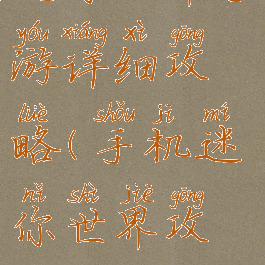 yóu xiáng xì gōng
游详细攻
lüè shǒu jī mí
略(手机迷
nǐ shì jiè gōng
你世界攻